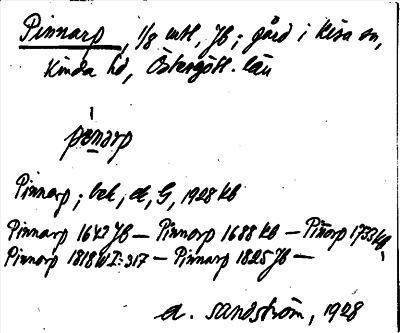 Pinnarp, 1/8 mtl, Jb; gård i Kisa sn,
Kinda hd, Östergötl. län
penarp
Pinnarp; bek, A, G, 1928 Kb
Pinnarp 1643 Jb — Pinnorp 1688 Kb — Piñorp 1733 Kb,
Pinnorp 1818 W I: 317 — Pinnarp 1825 Jb —
A. Sandström, 1928